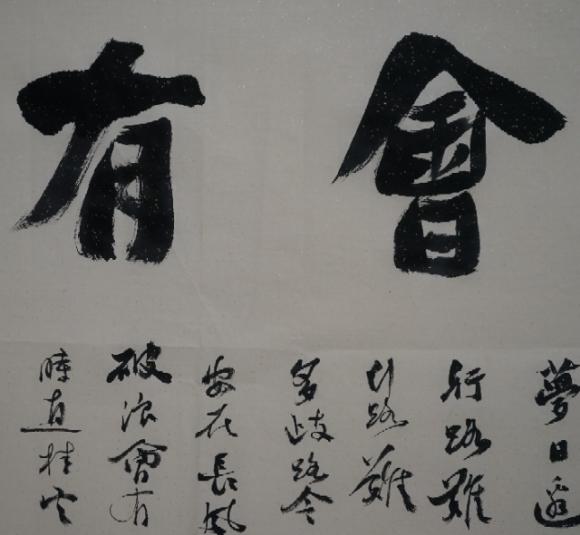 會有
夢日邊
行路難
行路難
多歧路今
安在長風
破浪會有
時直挂云